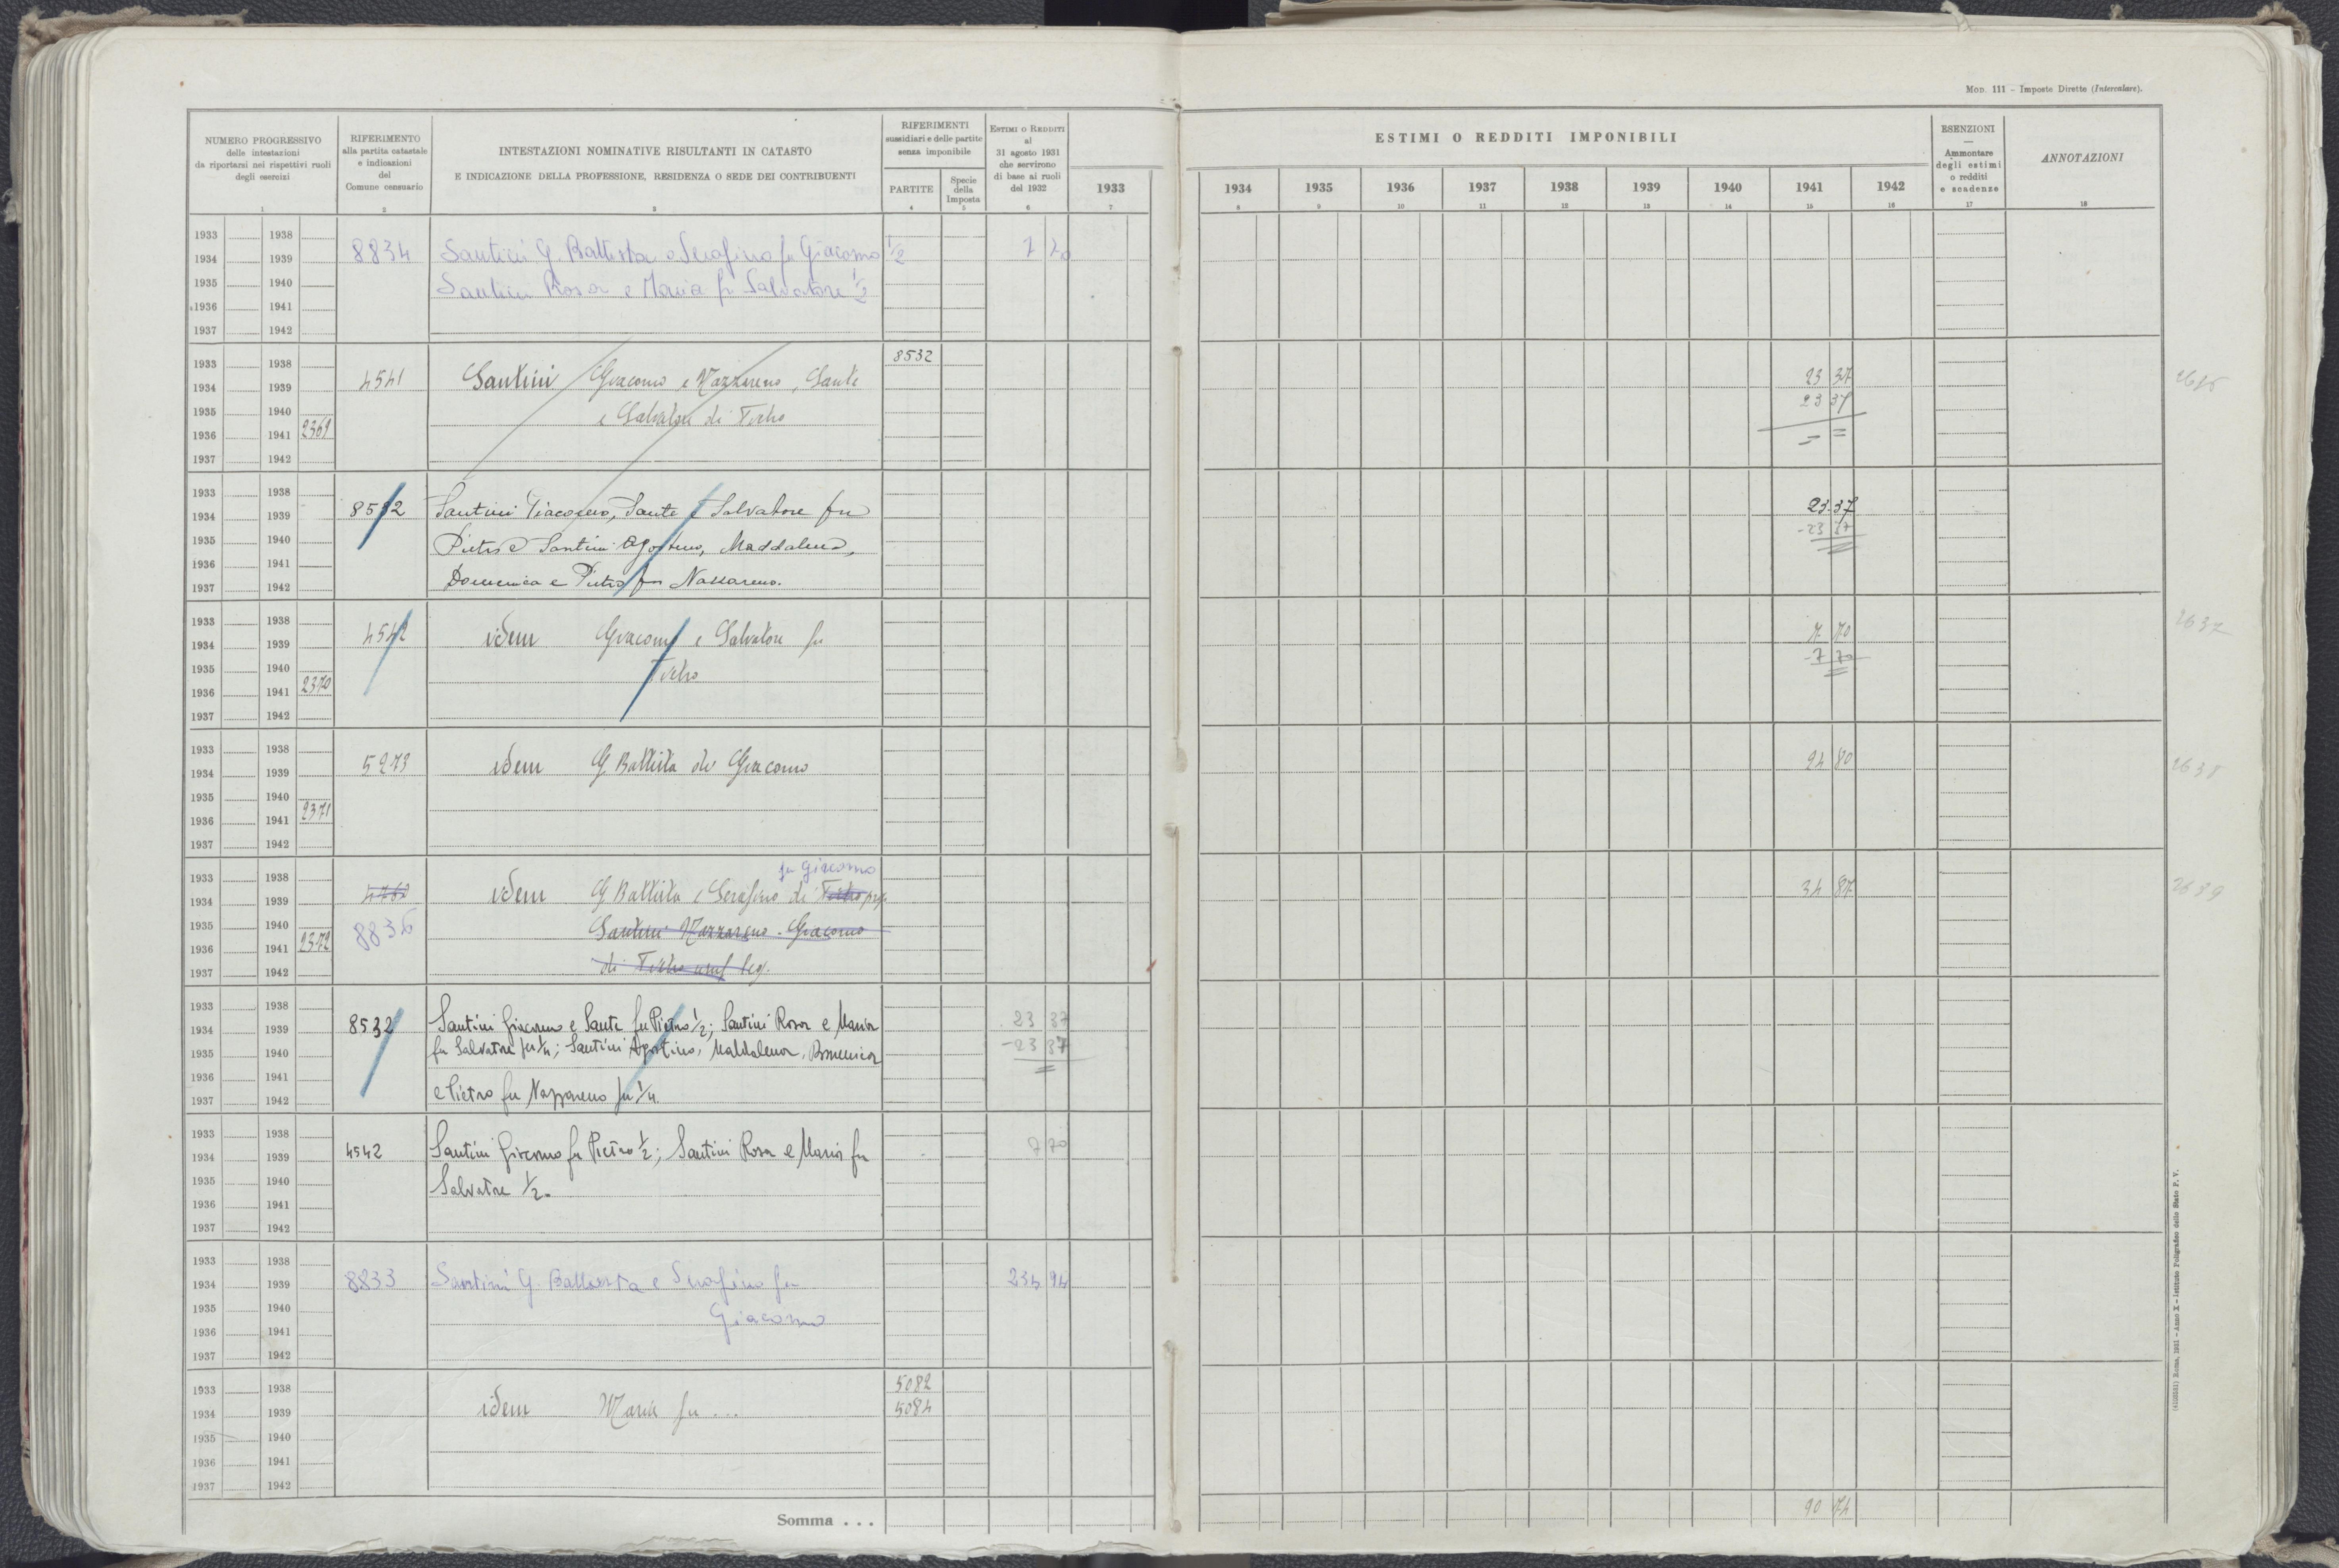 Mod. 111 - Imposte Dirette (Intercalare).
NUMERO PROGRESSIVO
delle intestazioni
da riportarsi nei rispettivi ruoli
degli esercizi
1
RIFERIMENTO
alla partita catastale
e indicazioni
del
Comune censuario
2
INTESTAZIONI NOMINATIVE RISULTANTI IN CATASTO
E INDICAZIONE DELLA PROFESSIONE, RESIDENZA O SEDE DEI CONTRIBUENTI
3
RIFERIMENTI
sussidiari e delle partite
senza imponibile
PARTITE
4
Specie
della
Imposta
5
Estimi o Redditi
al
31 agosto 1931
che servirono
di base ai ruoli
del 1932
6
1933
7
ESTIMI O REDDITI IMPONIBILI
1934 1935 1936 1937 1938 1939 1940 1941 1942
8 9 10 11 12 13 14 15 16
ESENZIONI
Ammontare
degli estimi
o redditi
e scadenze
17
ANNOTAZIONI
18
1933 1938
1934 1939 8834 Santini G. Battista e Serafino fu Giacomo 1/2 7 70
1935 1940 Santini Rosa e Maria fu Salvatore 1/2
1936 1941
1937 1942
1933 1938 8532
1934 1939 4541 Santini Giacomo e Nazzareno, Sante 23 37
1935 1940 e Salvatore di Pietro 23 37
1936 1941 2369 - =
1937 1942
1933 1938
1934 1939 8532 Santini Giacomo, Sante e Salvatore fu 23.37
1935 1940 Pietro e Santini Agostino, Maddalena, -23 37
1936 1941
1937 1942 Domenica e Pietro fu Nazzareno.
1933 1938
1934 1939 4542 idem Giacomo e Salvatore fu 7 70 2637
1935 1940 Pietro -7 70
1936 1941 2370
1937 1942
1933 1938
1934 1939 5273 idem G Battista di Giacomo 24 80 2638
1935 1940
1936 1941 2371
1937 1942
fu Giacomo
1933 1938
1934 1939 idem G Battista e Serafino di Pietro prop. 34 87 2639
1935 1940 8836 Santini Nazzareno - Giacomo
1936 1941 2372
1937 1942 di Pietro usuf leg.
1933 1938
1934 1939 8532 Santini Giacomo e Sante fu Pietro 1/2; Santini Rosa e Maria 23 37
1935 1940 fu Salvatore per 1/4; Santini Agostino, Maddalena, Domenica -23 37
1936 1941
1937 1942 e Pietro fu Nazzareno per 1/4.
1933 1938
1934 1939 4542 Santini Giacomo fu Pietro 1/2; Santini Rosa e Maria fu 7 70
1935 1940 Salvatore 1/2.
1936 1941
1937 1942
1933 1938
1934 1939 8833 Santini G. Battista e Serafino fu 234 94
1935 1940 Giacomo
1936 1941
1937 1942
1933 1938 5082
1934 1939 idem Maria fu ... 5084
1935 1940
1936 1941
1937 1942
Somma . . . 90 74
(4103331) Roma, 1931 - Anno X - Istituto Poligrafico dello Stato P. V.